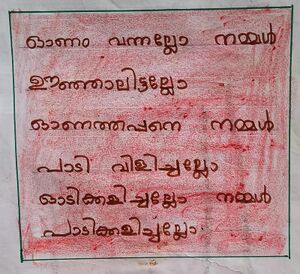 ഓണം വന്നല്ലോ നമ്മൾ
ഊഞ്ഞാലിട്ടല്ലോ
ഓണത്തപ്പനെ നമ്മൾ
പാടി വിളിച്ചല്ലോ
ഓടിക്കളിച്ചല്ലോ നമ്മൾ
പാടിക്കളിച്ചല്ലോ.